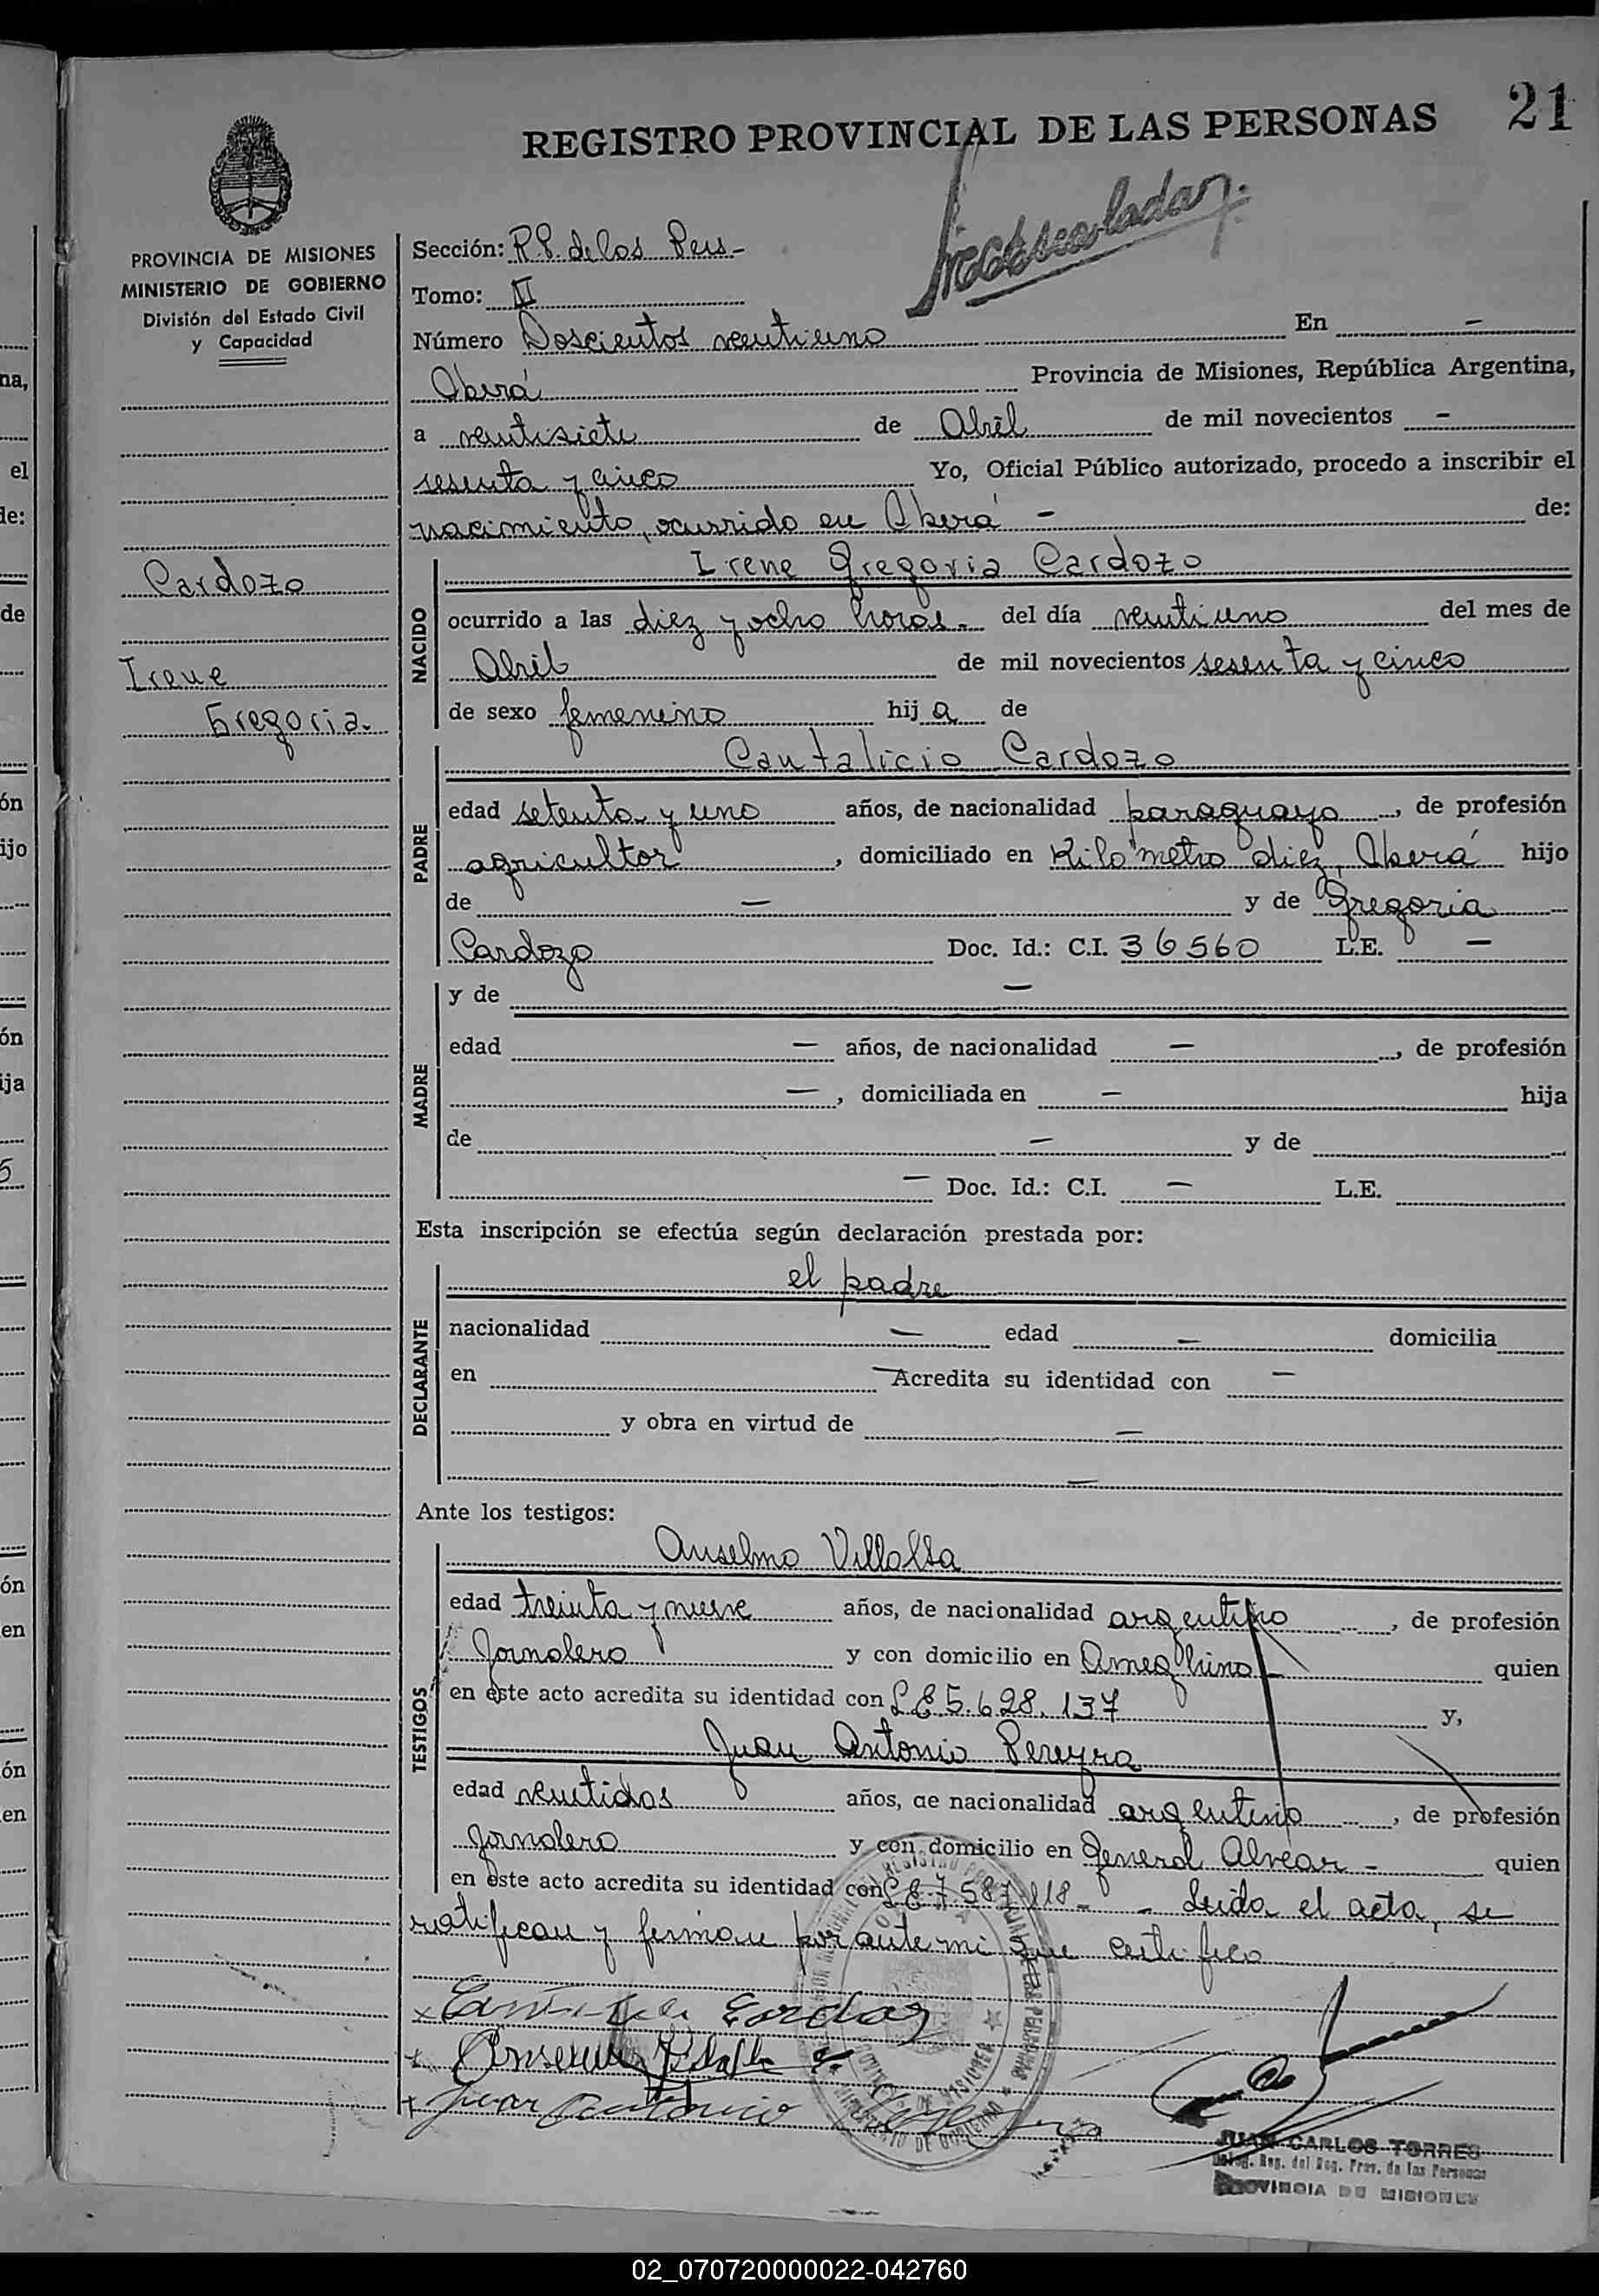 21
REGISTRO PROVINCIAL DE LAS PERSONAS
PROVINCIA DE MISIONES
MINISTERIO DE GOBIERNO
División del Estado Civil
y Capacidad
Cardozo
Irene
Gregoria.
Sección: R.P. de las Pers-
Tomo: II
Número Doscientos veintiuno En -
Oberá Provincia de Misiones, República Argentina,
a veintisiete de Abril de mil novecientos -
sesenta y cinco Yo, Oficial Público autorizado, procedo a inscribir el
nacimiento, ocurrido en Oberá - de:
NACIDO
Irene Gregoria Cardozo
ocurrido a las diez y ocho horas.- del día veintiuno del mes de
Abril de mil novecientos sesenta y cinco
de sexo femenino hija de
PADRE
Cantalicio Cardozo
edad setenta y uno años, de nacionalidad paraguayo, de profesión
agricultor, domiciliado en Kilómetro diez, Oberá hijo
de - y de Gregoria
Cardozo Doc. Id.: C.I. 36560 L.E. -
MADRE
y de -
edad - años, de nacionalidad -, de profesión
-, domiciliada en - hija
de - y de
- Doc. Id.: C.I. - L.E.
Esta inscripción se efectúa según declaración prestada por:
DECLARANTE
el padre
nacionalidad - edad - domicilia
en - Acredita su identidad con -
y obra en virtud de -
-
Ante los testigos:
TESTIGOS
Anselmo Villalba
edad treinta y nueve años, de nacionalidad argentino, de profesión
Jornalero y con domicilio en Ameghino - quien
en este acto acredita su identidad con L E 5.628.137 y,
Juan Antonio Pereyra
edad veintidos años, de nacionalidad argentino, de profesión
Jornalero y con domicilio en General Alvear - quien
en este acto acredita su identidad con L E 7.587.118 - - Leida el acta, se
ratifican y firman por ante mi que certifico
Juan Antonio
JUAN CARLOS TORRES
Deleg. Reg. del Reg. Prov. de las Personas
PROVINCIA DE MISIONES
02_070720000022-042760